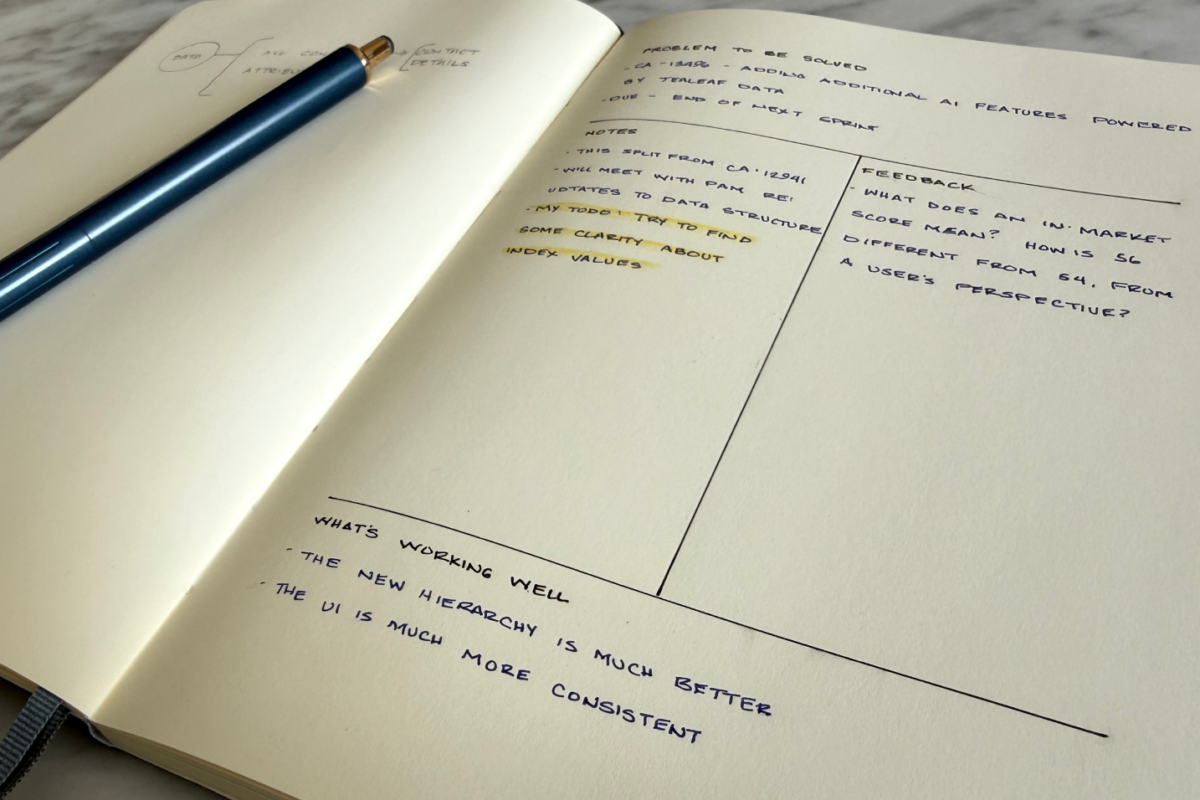 DATA
ALL CON
CONTACT
ATTRIBU
DETAILS
PROBLEM TO BE SOLVED
- CA-13496 - ADDING ADDITIONAL AI FEATURES POWERED
BY TEALEAF DATA
- DUE - END OF NEXT SPRINT
NOTES
- THIS SPLIT FROM CA-12941
- WILL MEET WITH PAM RE:
UDTATES TO DATA STRUCTURE
- MY TODO: TRY TO FIND
SOME CLARITY ABOUT
INDEX VALUES
FEEDBACK
- WHAT DOES AN IN-MARKET
SCORE MEAN? HOW IS 56
DIFFERENT FROM 64, FROM
A USER'S PERSPECTIVE?
WHAT'S WORKING WELL
- THE NEW HIERARCHY IS MUCH BETTER
- THE UI IS MUCH MORE CONSISTENT